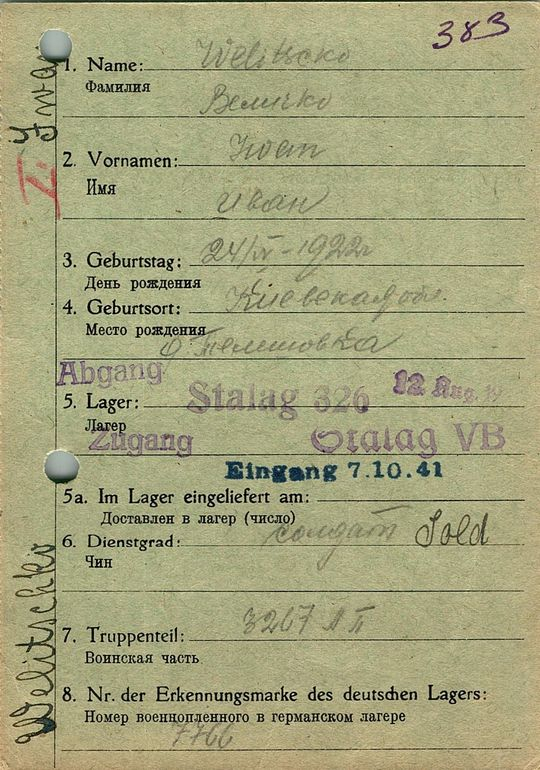 383
1. Name: Welitscko
Фамилия
Величко
2. Vornamen: Iwan
Имя
Иван
3. Geburtstag: 24/IV-1922г
День рождения
4. Geburtsort: Киевская обл.
Место рождения
Abgang
5. Lager: Stalag 326 12 Aug.
Лагер
Zugang Stalag VB
Eingang 7.10.41
5a. Im Lager eingeliefert am:
Доставлен в лагер (число)
6. Dienstgrad: солдат Sold
Чин
7. Truppenteil: 3267
Воинская часть
8. Nr. der Erkennungsmarke des deutschen Lagers:
Номер военнопленного в германском лагере
7766
Welitschko
Iwan